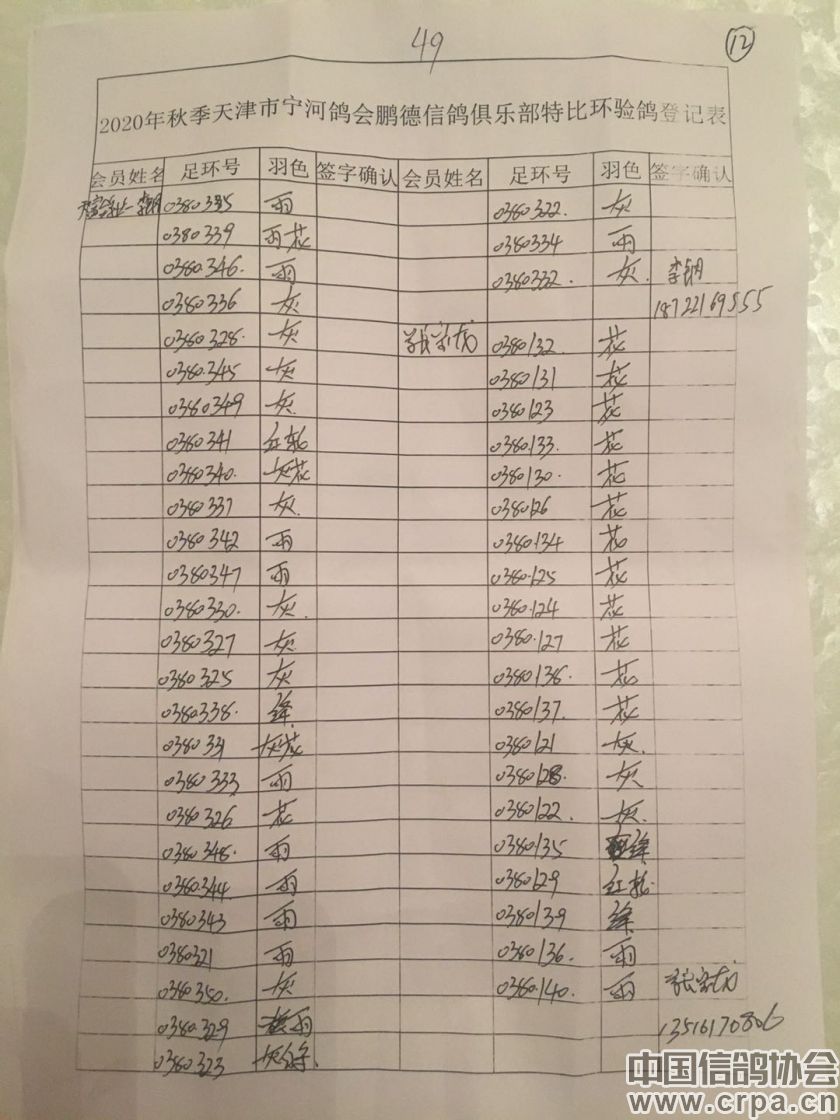 49
12
2020年秋季天津市宁河鸽会鹏德信鸽俱乐部特比环验鸽登记表
会员姓名 足环号 羽色 签字确认 会员姓名 足环号 羽色 签字确认
0380335 雨 0380322. 灰
0380339 雨花 0380334 雨
0380346. 雨 0380332. 灰. 李钢
0380336 灰 18722169555
0380328. 灰 0380132. 花
0380345 灰 0380131 花
0380349 灰. 0380123 花
0380341 红轮 0380133. 花
0380340. 灰花 0380130. 花
0380337 灰. 0380126 花
0380342 雨 0380134 花
0380347 雨 0380125 花
0380330. 灰. 0380124 花
0380327 灰 0380127 花
0380325 灰 0380138. 花
0380338. 绛 0380137. 花
0380331 灰花 0380121 灰.
0380333 雨 0380128. 灰
0380326 花 0380122. 灰.
0380348. 雨 0380135 绛
0380344. 雨 0380129 红轮
0380343 雨 0380139 绛
0380321 雨 0380136. 雨
0380350. 灰 0380140. 雨
0380329 雨 13516170806
0380323 灰
中国信鸽协会
www.crpa.cn